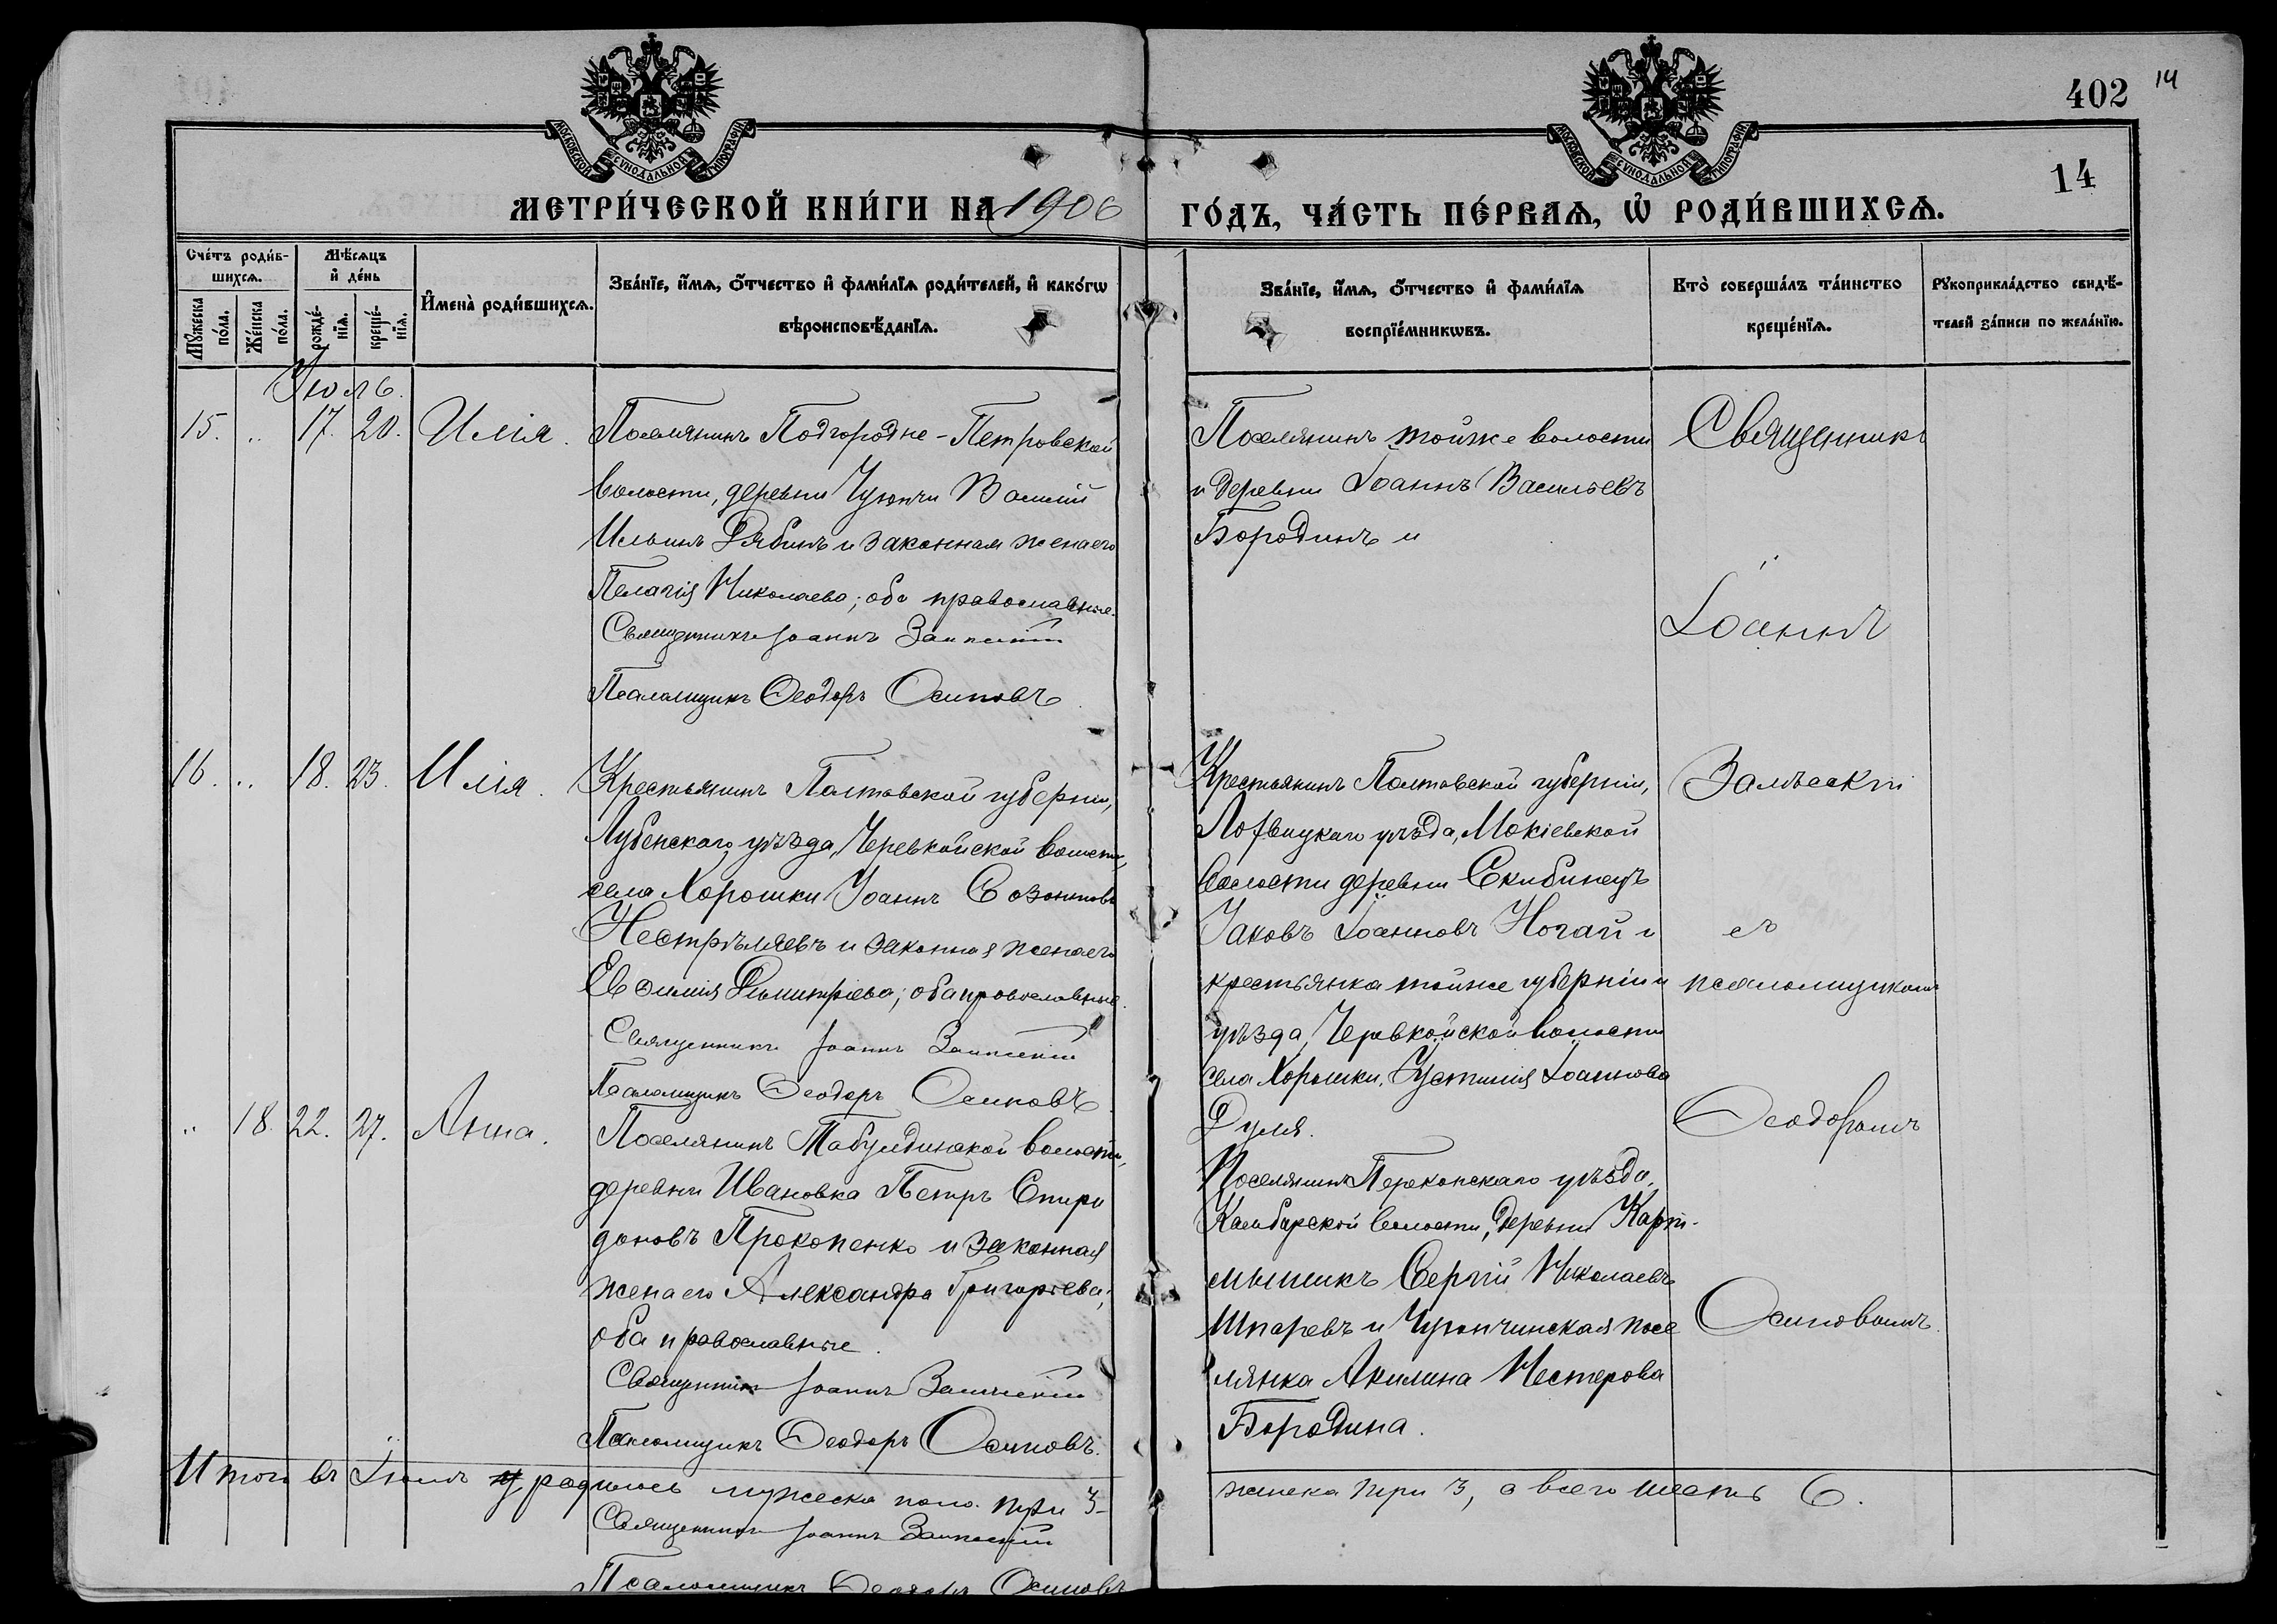 402 14
14
МОСКОВСКОЙ СѴНОДАЛЬНОЙ ТИПОГРАФІИ
МОСКОВСКОЙ СѴНОДАЛЬНОЙ ТИПОГРАФІИ
МЕТРИ́ЧЕСКОЙ КНИ́ГИ НА 1906
ГО́ДЪ, ЧА́СТЬ ПЕ́РВАѦ, Ѡ РОДИ́ВШИХСѦ.
Сче́тъ роди́в-
шихсѧ.
Мѣ́сѧцъ
и҆ де́нь
Мꙋжеска
по́ла.
Же́нска
по́ла.
рожде́-
нїѧ.
креще́-
нїѧ.
И҆мена̀ роди́вшихсѧ.
Зва́нїе, и҆́мѧ, ѻ҆́тчество и҆ фами́лїѧ роди́телей, и҆ како́гѡ
вѣроисповѣ́данїѧ.
Зва́нїе, и҆́мѧ, ѻ҆́тчество и҆ фами́лїѧ
воспрїе́мникѡвъ.
Кто̀ соверша́лъ та́инство
креще́нїѧ.
Рꙋкоприкла́дство свидѣ́-
телей за́писи по жела́нїю.
Іюль.
15. „ 17. 20. Илія.
Поселянинъ Подгородне-Петровской
волости, деревни Чуюнчи Василій
Ильинъ Рябинъ и законная жена его
Пелагія Николаева; оба православные.
Священникъ Іоаннъ
Псаломщикъ Ѳеодоръ Осиповъ.
Поселянинъ тойже волости
и деревни Іоаннъ Васильевъ
Бородинъ и
Священникъ
Іоаннъ
16. „ 18. 23. Илія.
Крестьянинъ Полтавской губерніи,
Лубенскаго уѣзда, Черевкойской волости,
села Хорошки Іоаннъ Созонтовъ
Нестрѣляевъ и законная жена его
Евѳимія Димитріева; оба православные.
Священникъ Іоаннъ
Псаломщикъ Ѳеодоръ Осиповъ.
Крестьянинъ Полтавской губерніи,
Лохвицкаго уѣзда, Мокіевской
волости деревни Скибинецъ
Іаковъ Іоанновъ Ногай и
крестьянка тойже губерніи и
уѣзда, Черевкойской волости
села Хорошки, Іустинія Іоаннова
Дуля.
съ
псаломщикомъ
Ѳеодоромъ
Осиповымъ.
„ 18. 22. 27. Анна.
Поселянинъ Табулдинской волости,
деревни Ивановка Петръ Спири
доновъ Прокопенко и законная
жена его Александра Григорьева;
оба православные.
Священникъ Іоаннъ
Псаломщикъ Ѳеодоръ Осиповъ.
Поселянинъ Перекопскаго уѣзда,
волости, деревни Карт-
мышикъ Сергій Николаевъ
Шпаревъ и Чуюнчинская посе
лянка Акилина Нестерова
Бородина.
Итого въ Іюлѣ родилось мужеска пола три 3-
женска три 3, а всего шесть 6.
Священникъ Іоаннъ
Псаломщикъ Ѳеодоръ Осиповъ